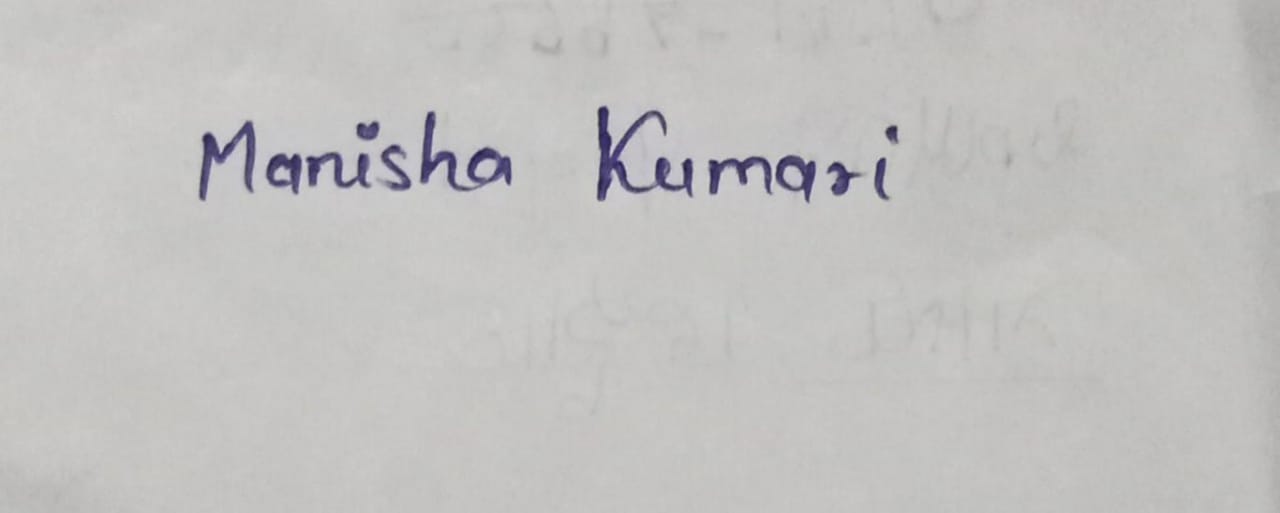 Manisha Kumari